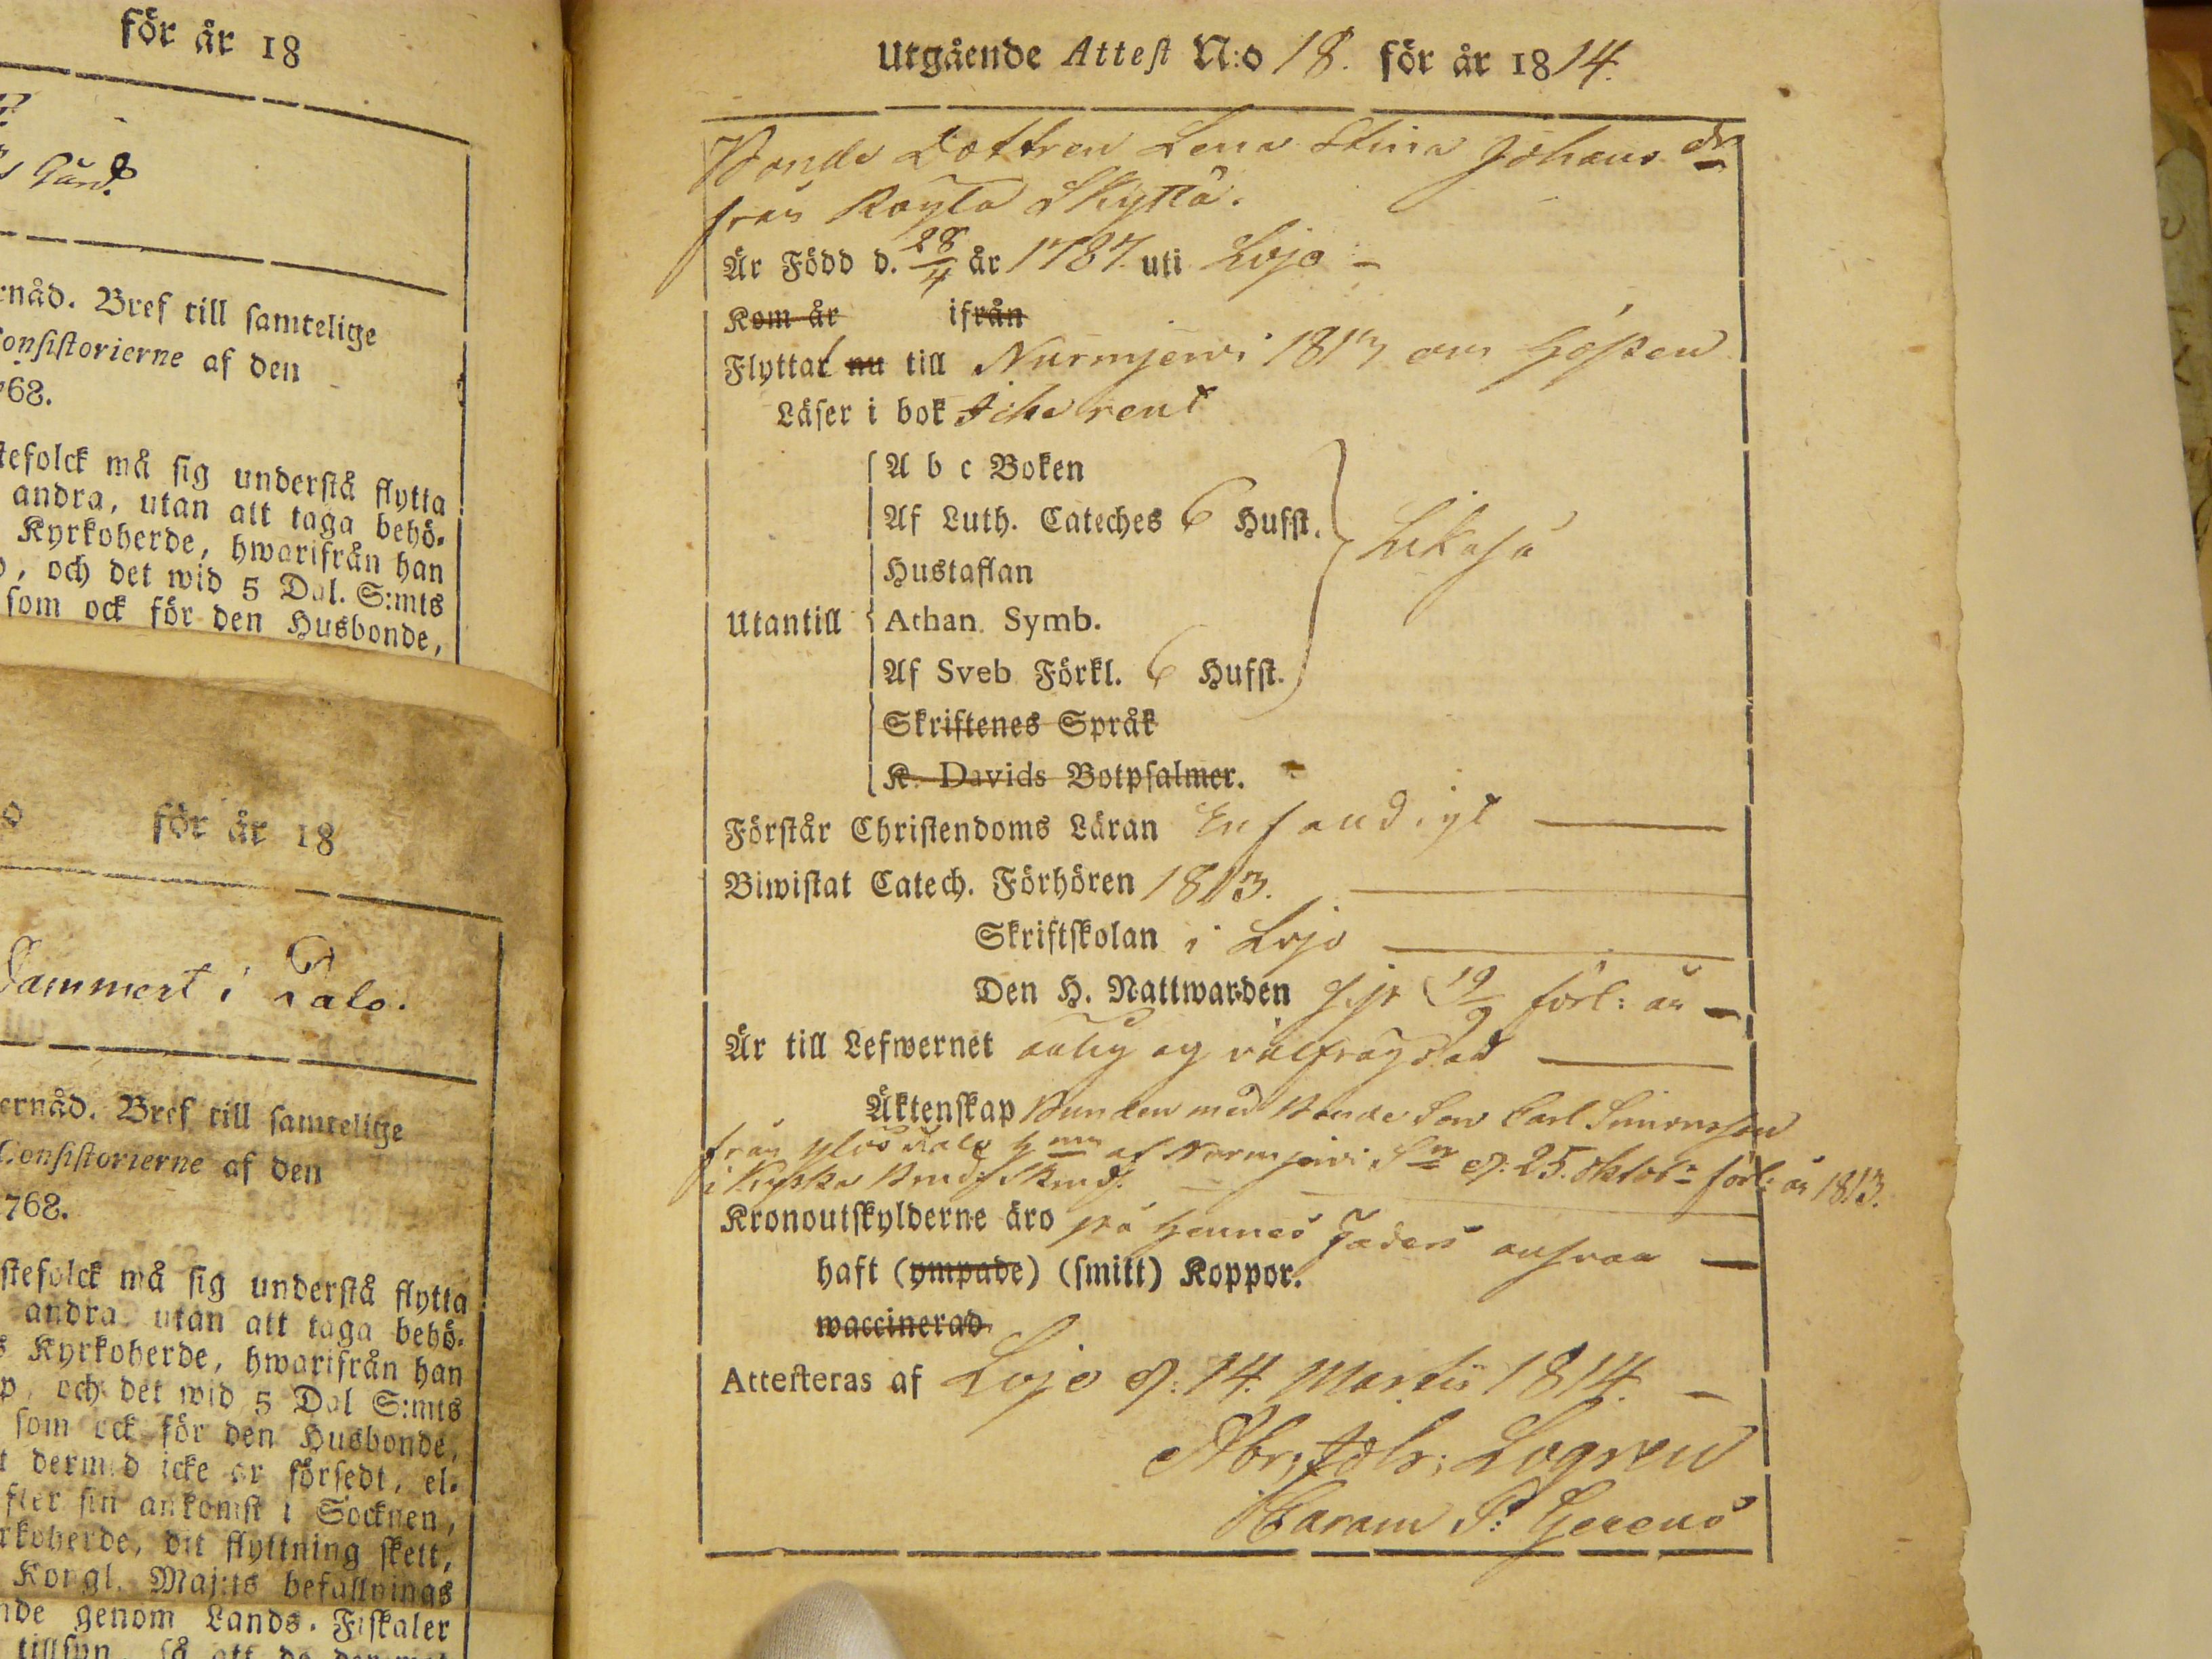 för år 18
Gård.
rnåd. Bref till samtelige
onsistorierne af den
768.
stefolck må sig understå flytta
andra, utan att taga behö-
Kyrkoherde, hwarifrån han
, och det wid 5 Dal. S:mts
som ock för den Husbonde,
o för år 18
Dammert i Palo.
ernåd. Bref till samtelige
Consistorierne af den
768.
stefolck må sig understå flytta
andra, utan att taga behö-
s Kyrkoherde, hwarifrån han
p, och det wid 5 Dal S:mts
som ock för den Husbonde,
t dermed icke är försedt, el-
fter sin ankomst i Socknen,
rkoherde, dit flyttning skett,
Kongl. Maj:ts befallnings
nde genom Lands-Fiskaler
tillsyn, så att de
Utgående Attest N:o 18. för år 1814.
Bonde Dottren Lena Stina Johans dr
från Röylä Skyttä.
Är Född d. 28/4 år 1787 uti Lojo –
Kom år ifrån
Flyttat nu till Nurmjerwi 1813 om hösten
Läser i bok icke rent
A b c Boken
Af Luth. Cateches 6 Hufst.
Likaså
Hustaflan
Utantill Athan. Symb.
Af Sveb Förkl. 6 Hufst.
Skriftenes Språk
K. Davids Botpsalmer.
Förstår Christendoms Läran Enfaudigt
Biwistat Catech. Förhören 1813.
Skriftskolan i Lojo
Den H. Nattwarden 19/9 förl: år –
Är till Lefwernet ärlig og välfrägdad
Äktenskap Bunden med Bonde Son Carl Simonsson
från af Nurmjerwi Sn d: 25. oktobr förl: år 1813.
i
Kronoutskylderne äro på hennes Faders answar –
haft (ympade) (smitt) Koppor.
waccinerad.
Attesteras af Lojo d: 14. Martii 1814. –
Abr: Joh: Logren
P: Gerens